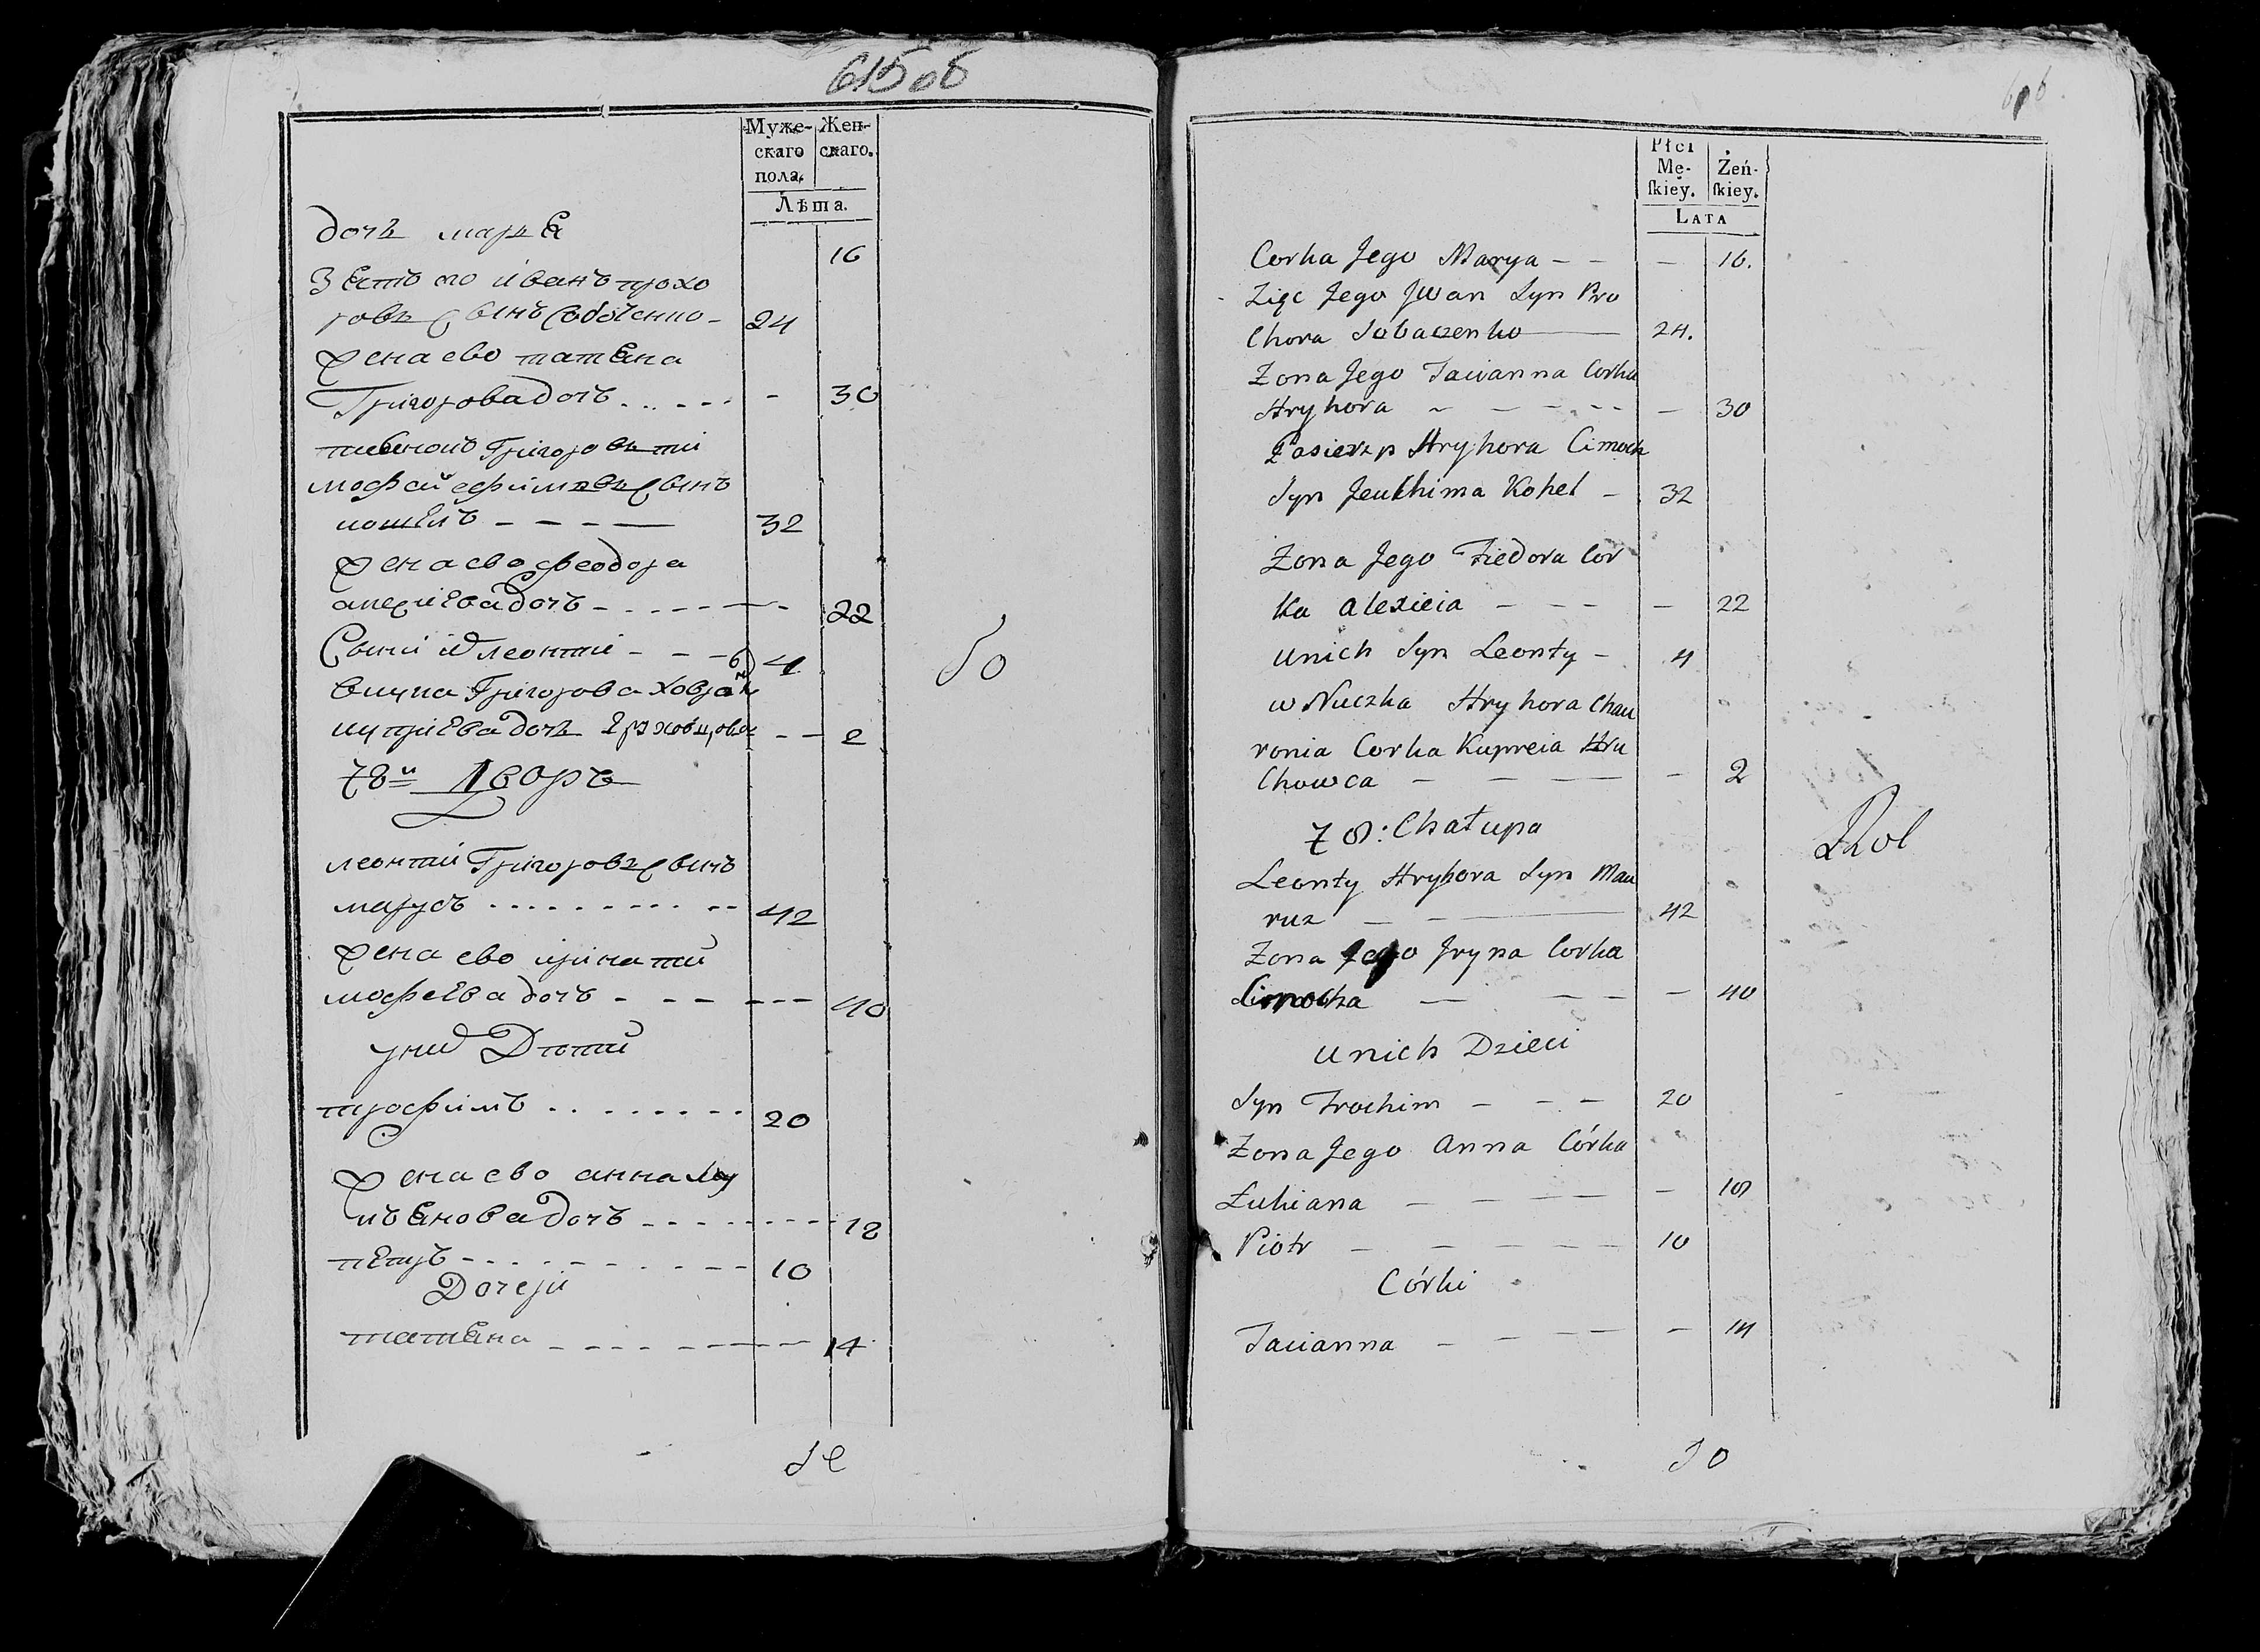 615 об
Муже- Жен-
скаго скаго.
пола.
Лѣта.
дочь марья
16
Зять ево иванъ прохо
ровъ сынъ собаченко - 24
жена ево татьяна
Григорова дочъ - 30
пасынокъ Григоровъ ти
мофей ефимовъ сынъ
кошелъ - - - - 32
жена ево феодора
алексиева дочъ - - - - 22
Сынъ их леонтий - - - 4
внучка Григорова Ховра
куприева дочь - - 2
78й Дворъ
леонтий Григоровъ сынъ
марусъ - - - - 42
жена ево ирина ти
мофеева дочъ - - - - - 40
у них Дѣти
трофимъ - - - - 20
жена ево анна лу
кьянова дочъ - - - - 18
петръ - - - - 10
Дочери
татьяна - - - - 14
Płci
Mę- Żeń-
ſkiey. ſkiey.
LATA
Corka Jego Marya - - - 16.
Zięc Jego Jwan Syn Pro
Chora Sobaczenko - 24.
Zona Jego Tacianna Corka
Hryhora - - - - - 30
Pasierzp Hryhora Cimoch
Syn Jeuchima Kohel - 32
Zona Jego Fiedora Cor
Ka Alexieia - - - - 22
unich Syn Leonty - 4
wNuczka Hryhora Chau
ronia Corka Kupreia Hru
Chowca - - - - 2
78: Chałupa
Leonty Hryhora Syn Mau
ruz - - - 42
Zona Jego Jryna Corka
Cimocha - - - - 40
unich Dzieci
Syn Trochim - - - 20
Zona Jego Anna Córka
Łukiana - - - - - 18
Piotr - - - - - 10
Córki
Tacianna - - - - - 14